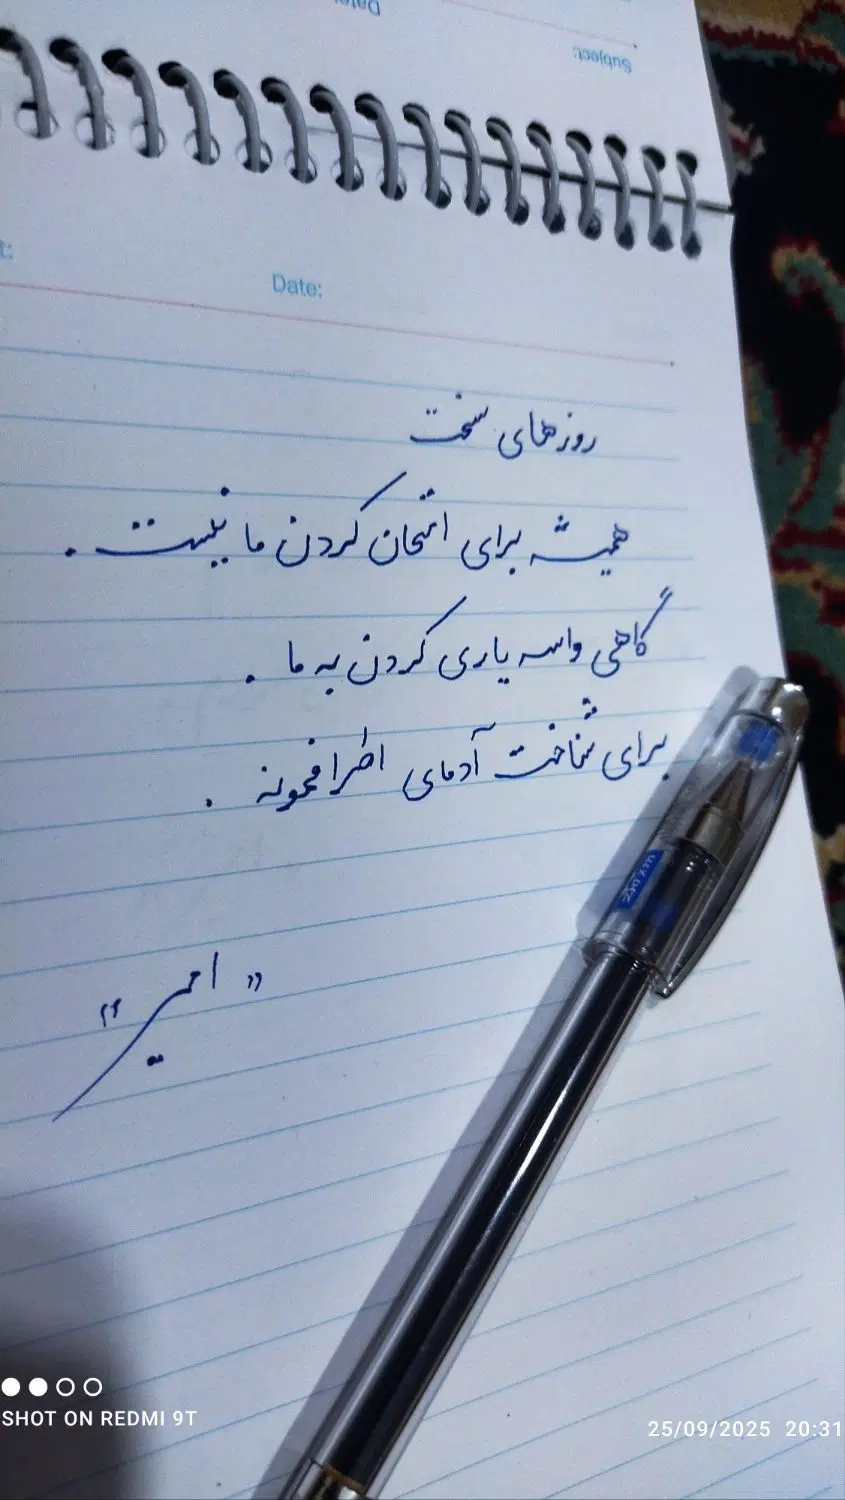 Date:
Subject:
t:
Date:
روزهای سخت
همیشه برای امتحان کردن ما نیست .
گاهی واسه یاری کردن به ما .
برای شناخت آدمای اطرافمونه .
" امیر "
SHOT ON REDMI 9T
25/09/2025 20:31